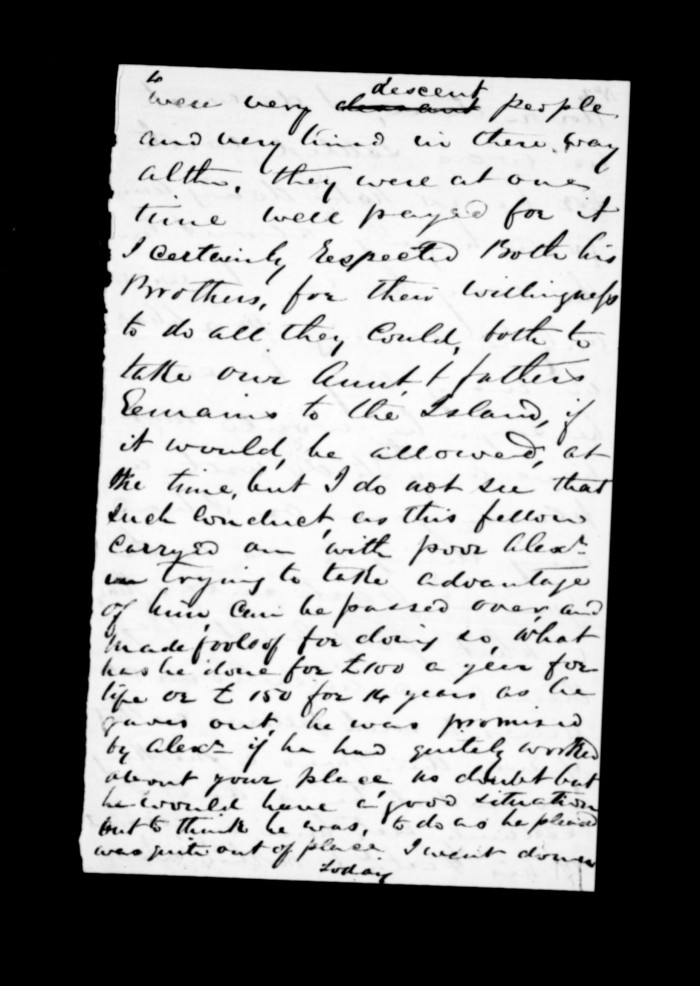 4
descent
were very people
and very kind in there way
altho, they were at one
time well payed for it
I certainly Respected Both his
Brothers, for their willingness
to do all they Could, both to
take our Aunt, & fathers
Remains to the Island, if
it would, be allowed, at
the time, but I do not see that
such Conduct, as this fellow
Carryed on with poor Alexr
in trying to take advantage
of him, Can be passed over, and
made fools of for doing so, what
has he done for £100 a year for
life or £150 for 14 years as he
gives out, he was promised
by Alexr if he had quitely worked
about your place no doubt but
he would have a good situation
but to think he was, to do as he pleased
was quite out of place I went down
today